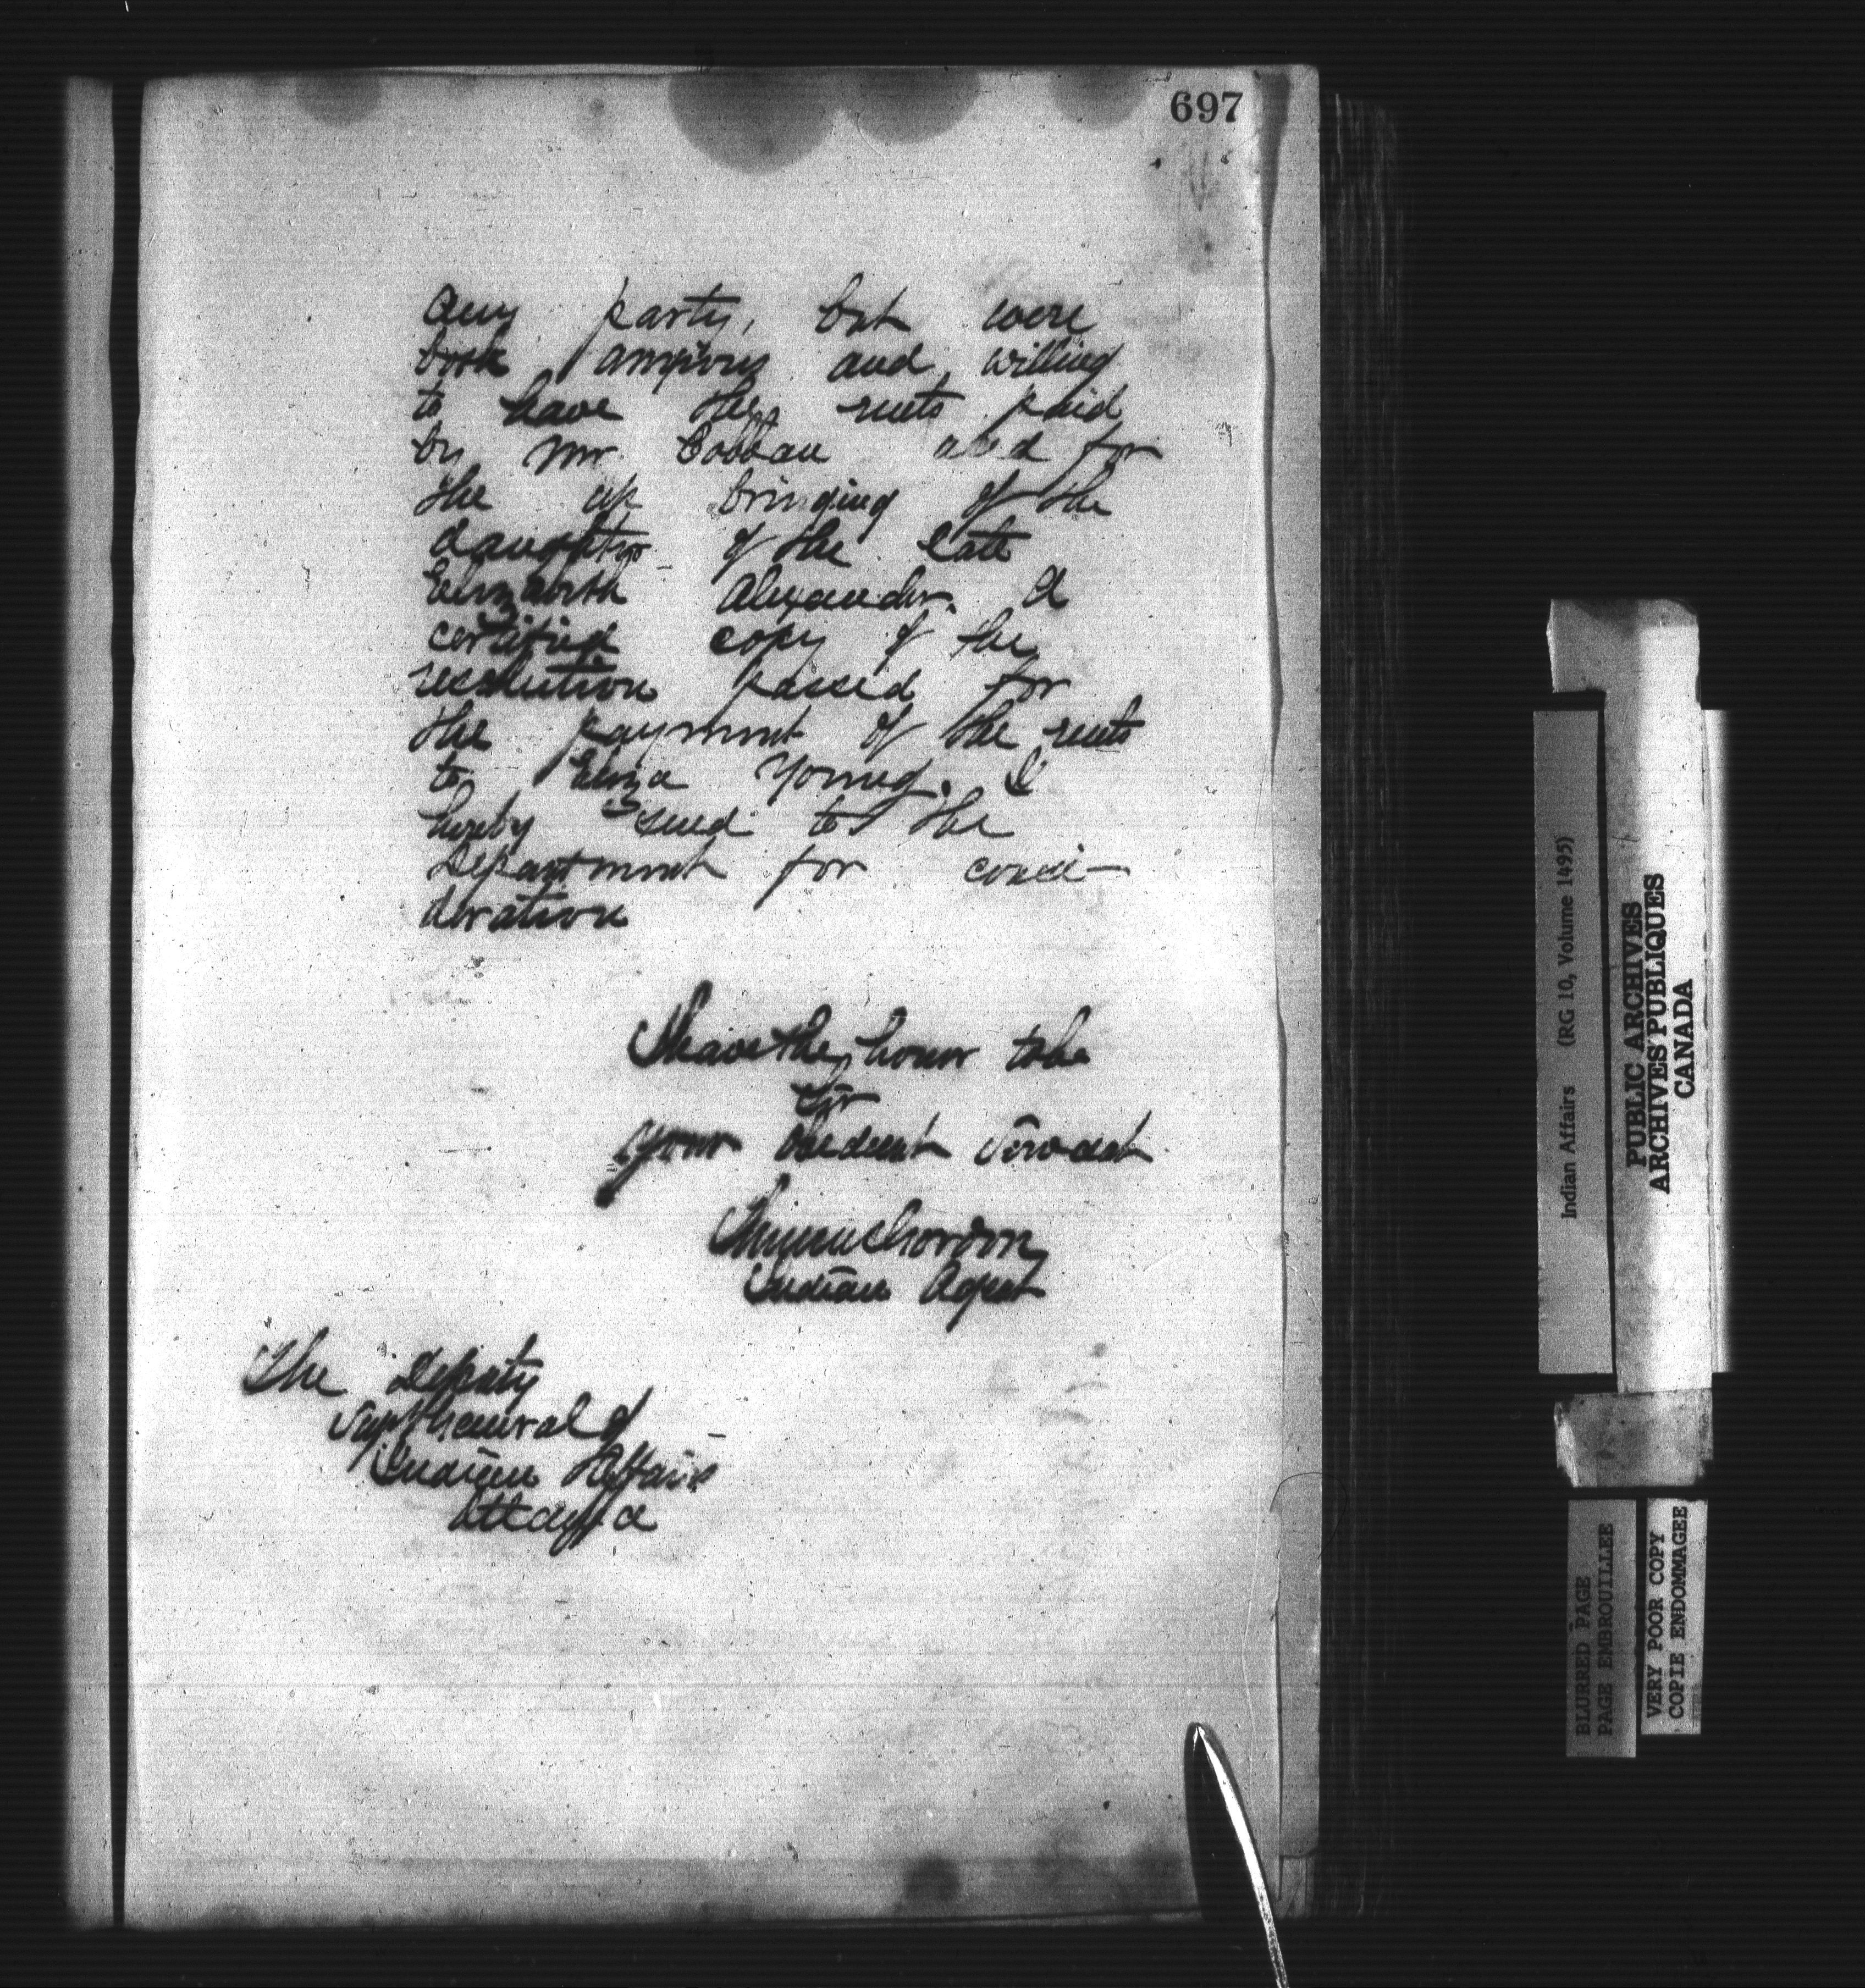 697
any party, but were
both anxious and willing
to have the rents paid
by Mr Cobban and for
the up bringing of the
daughter of the late
Elizabeth Alexander. A
certified copy of the
resolution passed for
the payment of the rents
to Eliza Young. I
hereby send to the
Department for consi-
deration
I have the honor to be
Sir
Your obedient Servant
Indian Agent
The Deputy
Supt General of
Indian Affairs
Ottawa
Indian Affairs (RG 10, Volume 1495)
PUBLIC ARCHIVES
ARCHIVES PUBLIQUES
CANADA
BLURRED PAGE
PAGE EMBROUILLEE
VERY POOR COPY
COPIE ENDOMMAGEE